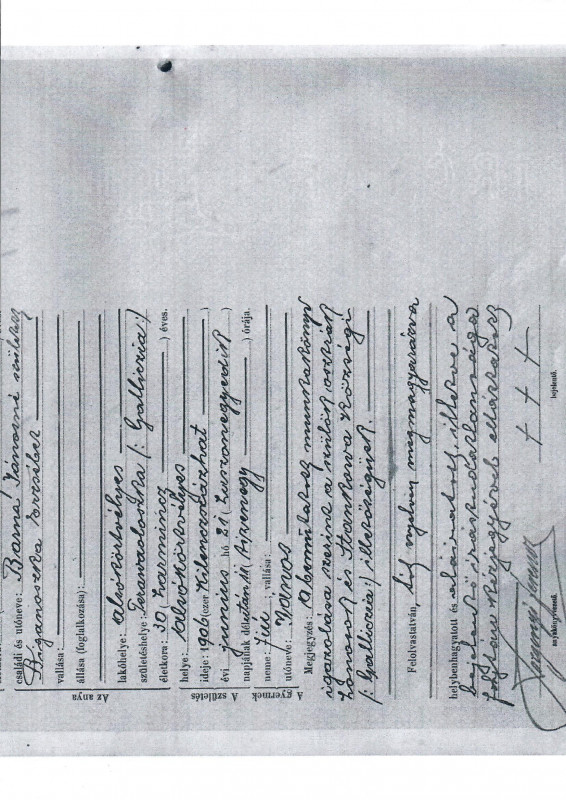 családi és utóneve: Barna Jánosné született
Biganoszka Erzsébet
vallása:
állása (foglalkozása):
lakóhelye: alsókörtvélyes
születéshelye: (: Galliczia :)
életkora: 30 (harmincz) éves.
helye: alsókörtvélyes
ideje: 1906 (ezer kilenczszázhat)
évi junius hó 21 (huszonegyedik)
napjának délután 11 (tizenegy) órája.
neme: fiú vallása:
utóneve: János
Az anya
A születés
A gyermek
Megjegyzés: A bemutatott munkakönyv
igazolása szerint a szülők osztrák
honosok és Stankowa községi
(: Galliczia :) illetőségüek.
Felolvastatván, tót nyelven megmagyarázva
helybenhagyatott és aláiratott, illetve a
bejelentő irástudatlansága
folytán kézjegyével elláttatott
+ + +
bejelentő.
anyakönyvvezető.